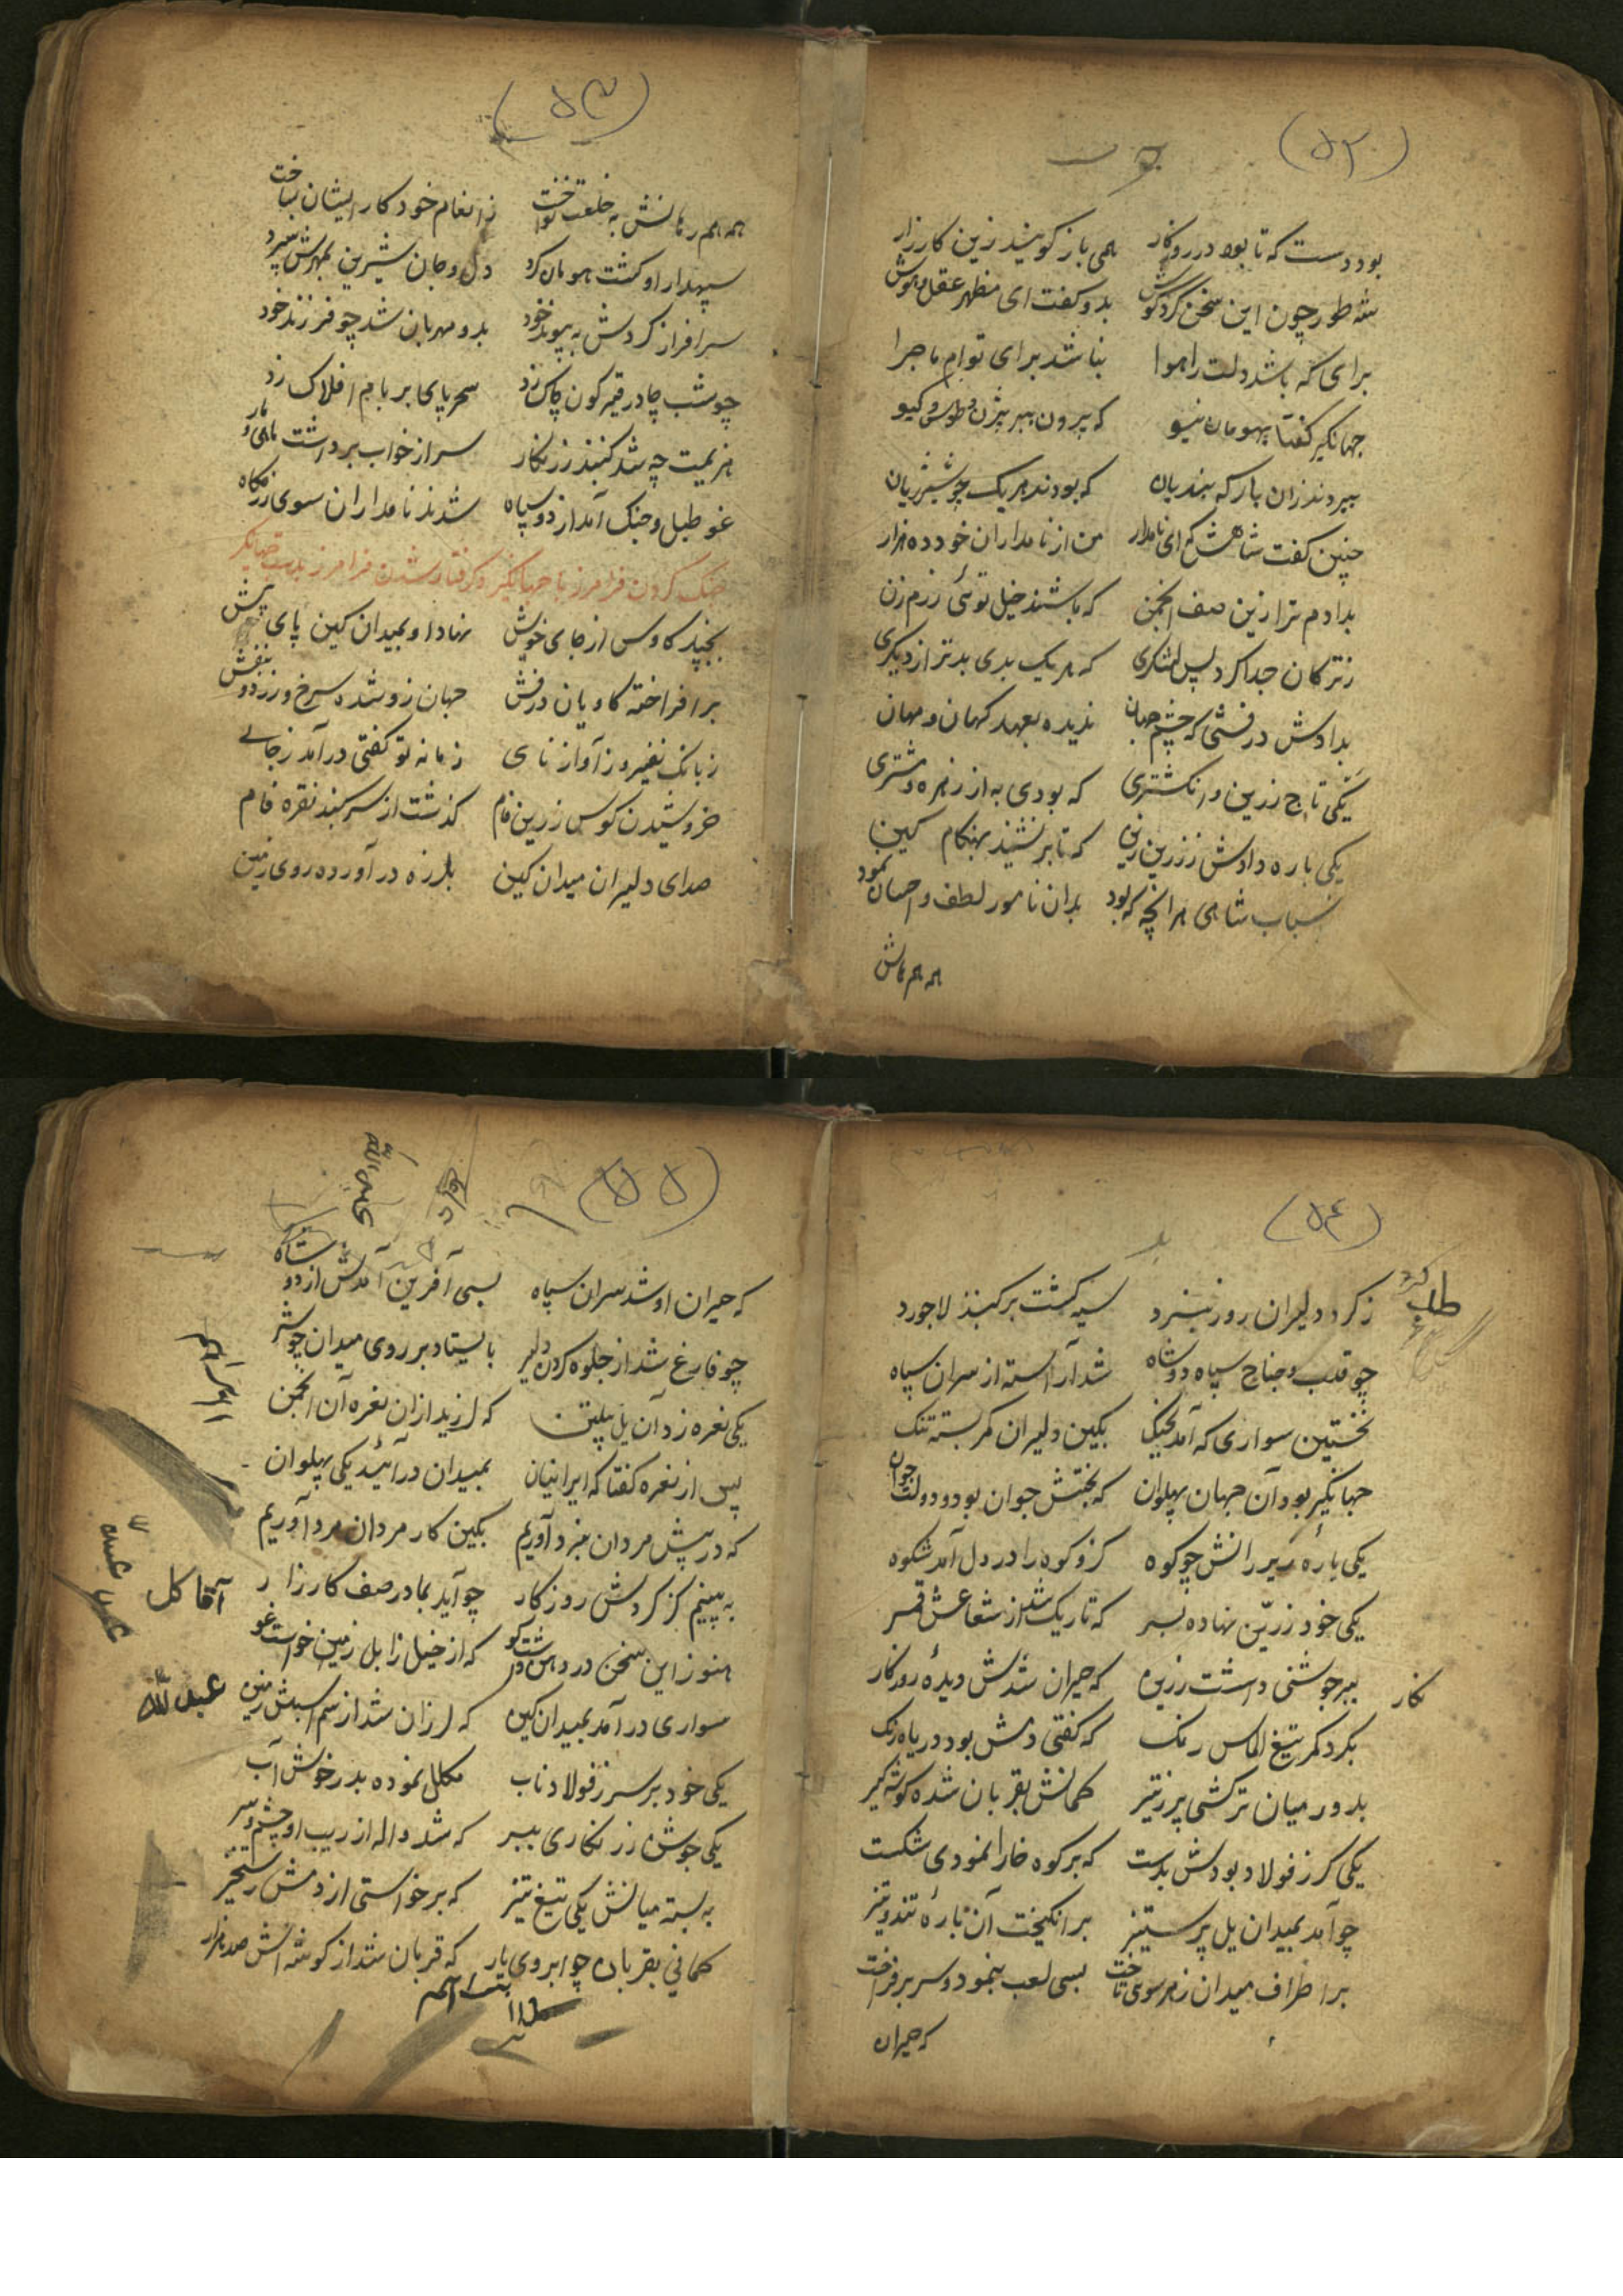 (۵۲)
بود دست که تا بود در روزکار همی باز کویند زین کارزار
شه طور چون این سخن کرد کوش بدو کفت ای مظهر عقل و هوش
برای که باشد دلت را هوا نباشد برای توام ماجرا
جهانکیر کفتا بهومان نیو که پیرون ببر بیژن و طوس و کیو
ببردند زان بارکه بندیان که بودند هر یک چو شیر ژیان
چنین کفت شاهش که ای نامدار من از نامداران خود ده هزار
بدادم ترا زین صف انجمن که باشند خیل توئی رزم زن
ز ترکان جدا کرد پس لشکری که هر یک بدی بدتر از دیکری
بدادش درفشی که چشم جهان ندیده بعهد کهان و مهان
یکی تاج زرین و انکشتری که بودی به از زهره و مشتری
یکی باره دادش ز زرین زین که تا برنشیند بهنکام کین
اسباب شاهی هر انچه که بود بدان نامور لطف و احسان نمود
همه همرهانش
(۵۳)
همه همرهانش به خلعت نواخت ز انعام خود کار ایشان بساخت
سپهدار او کشت هومان کرد دل و جان شیرین بمهرش سپرد
سرافراز کردش به پیوند خود بدو مهربان شد چو فرزند خود
چو شب چادر قیرکون چاک زد سحر پای بر بام افلاک زد
هزیمت چه شد کنبذ زرنکار سر از خواب برداشت ماهی و مار
غو طبل و جنک آمد از دو سپاه شدند نامداران سوی رزمکاه
جنک کردن فرامرز با جهانکیر و کرفتار شدن فرامرز بدست جهانکیر
بجنبید کاوس از جای خویش نهاد او بمیدان کین پای پیش
برافراخته کاویان درفش جهان زو شده سرخ و زرد و بنفش
ز بانک نفیر و ز آواز نای زمانه تو کفتی درآمد ز جای
خروشیدن کوس زرین فام کذشت از سر کنبد نقره فام
صدای دلیران میدان کین بلرزه در آورده روی زمین
(۵۴)
ز کرد دلیران روز نبرد سیه کشت بر کنبذ لاجورد
چو قلب و جناح سپاه دو شاه شد آراسته از سران سپاه
نخستین سواری که آمد بجنک بکین دلیران کمر بسته تنک
جهانکیر بود آن جهان پهلوان که بختش جوان بود و دولت جوان
یکی بارهٔ زیر رانش چو کوه کزو کوه را در دل آمد شکوه
یکی خود زرین نهاده بسر که تاریک شد از شعاعش قمر
ببر جوشنی داشت زرین نکار که حیران شدش دیدهٔ روزکار
بکرد کمر تیغ الماس رنک که کفتی دمش بود دریاه زنک
بدور میان ترکشی پر ز تیر کمانش بقربان شده کوشه کیر
یکی کرز فولاد بودش بدست که بر کوه خارا نمودی شکست
چو آمد بمیدان یل پر ستیز برانکیخت آن بارهٔ تند و تیز
بر اطراف میدان ز هر سوی تاخت بسی لعب بنمود و سر برفراخت
که حیران
(۵۵)
که حیران او شد سران سپاه بسی آفرین آمدش از دو شاه
چو فارغ شد از جلوه کردن دلیر بایستاد بر روی میدان چو شیر
یکی نعره زد آن یل پیلتن که لرزید از ان نعره آن انجمن
پس از نعره کفتا که ایرانیان بمیدان درآئید یکی پهلوان
که در پیش مردان نبرد آوریم بکین کار مردان مرد آوریم
به پینیم کز کردش روزکار چو آید بما در صف کارزار
هنوز این سخن در دهن داشت کو که از خیل زابل زمین خواست غو
سواری درآمد بمیدان کین که لرزان شد از سم اسبش زمین
یکی خود بر سر ز فولاد ناب مکلل نموده بدر خوش آب
یکی جوشن زرنکاری ببر که شد واله از زیب او چشم و سر
به بسته میانش یکی تیغ تیز که برخواستی از دمش رستخیز
کمانی بقربان چو ابروی یار که قربان شد از کوشه اش صد هزار
آقا کل
عبدالله